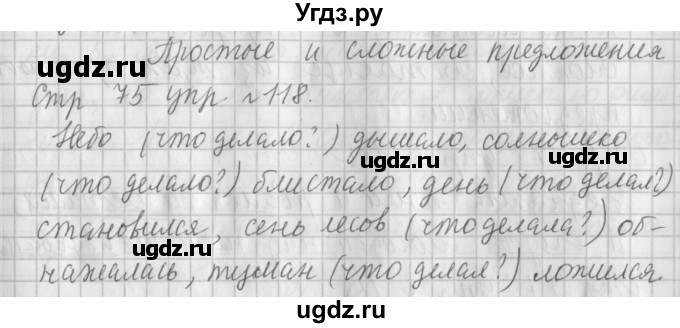 Угдз.ру
Простые и сложные предложения
ugdz.ru
Стр 75 упр №118.
ugdz.ru
Небо (что делало?) дышало, солнышко
ugdz.ru ugdz.ru
(что делало?) блистало, день (что делал?)
становился, сень лесов (что делала?) об-
ugdz.ru
нажалась, туман (что делал?) ложился.
ugdz.ru ugdz.ru